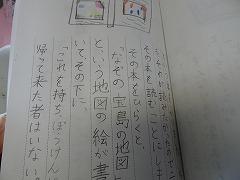 その本を読むことにしま
その本をひらくと、
「なぞの宝島の地図
という地図の絵が書
いてその下に、
「これを持ち、ぼうけん
帰って来た者はいない。